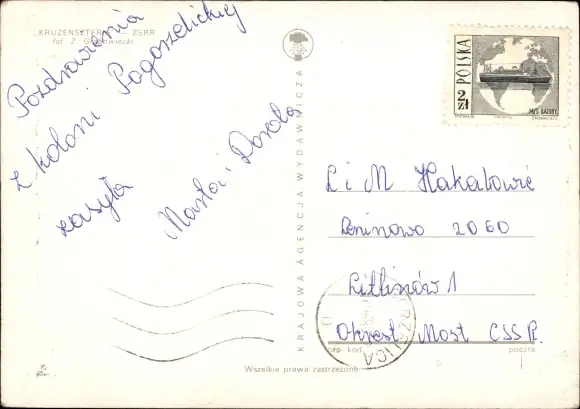 KRUZENSZTERN ZSRR
fot. Z.
Pozdrowienia
z kolonii Pogorzelickiej
zasyła
KRAJOWA AGENCJA WYDAWNICZA
POLSKA
2 ZŁ
M/S BATORY
L i M Hakalowić
Leninowo 2060
Litlinów 1
Okrest Most ČSSR
kod
poczta
Wszelkie prawa zastrzeżone